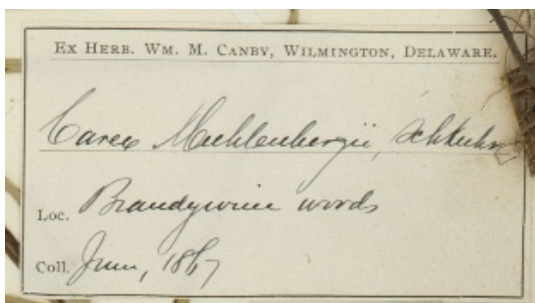 Ex Herb. Wm. M. Canby, Wilmington, Delaware.
Carex Muhlenbergii, Schkuhr
Loc. Brandywine woods
Coll. June, 1867